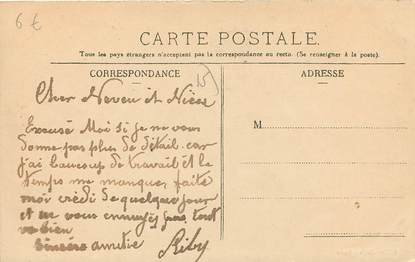 6 €
CARTE POSTALE.
Tous les pays étrangers n'acceptent pas la correspondance au recto. (Se renseigner à la poste).
CORRESPONDANCE
ADRESSE
15
Cher Neveu et Nièce
M
Excusé Moi si je ne vous
donne pas plus de détail car
j'ai baucoup de travail et le
temps me manque, faite
moi crédi de quelque jour
et ne vous ennuyés pas tout
va bien
Sincère amitié